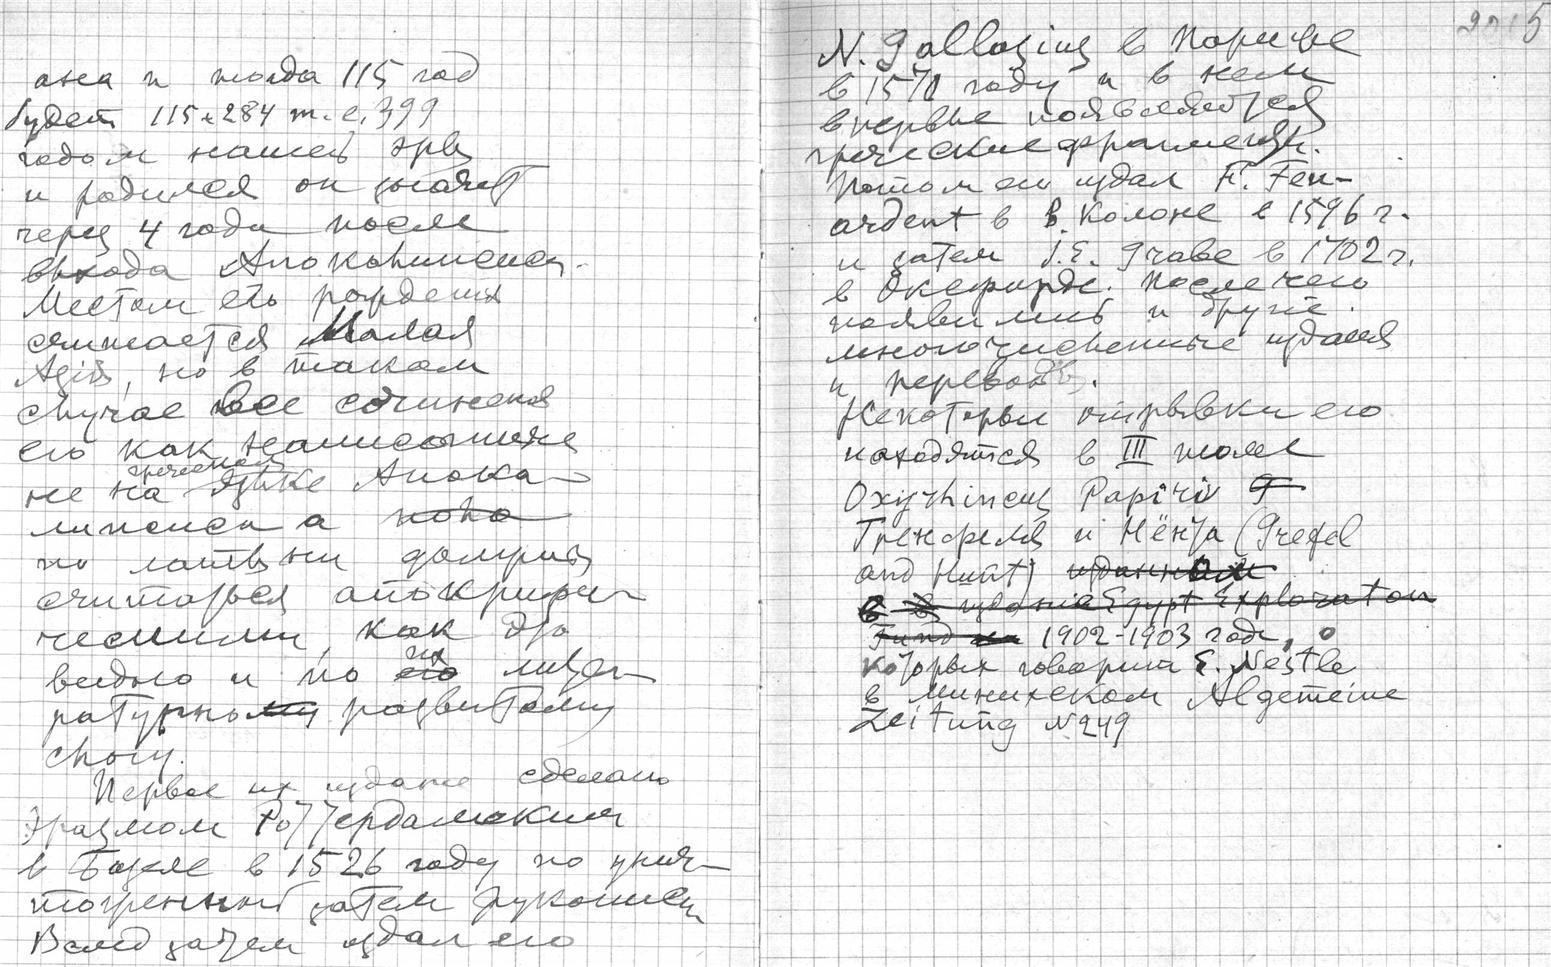 ана и тогда 115 год
будет 115+284 т.е. 399
годом нашей эры
и родился он значит
через 4 года после
выхода Апокалипсиса.
Местом его рождения
считается Малая
Азия, но в таком
случае все сочинения
его как написанные
не на греческом языке Апока-
липсиса а пого
по латыни должны
считаться апокрифи-
ческими, как это
видно и по его их лите-
ратурному развитому
слогу.
Первое их издание сделано
Эразмом Роттердамским
в Базеле в 1526 году по унич-
тоженной затем рукописи
Вслед зачем издал его
2015
N. Gallasius в Париже
в 1570 году и в нем
впервые появляются
греческие фрагменты.
Потом его издал F. Feu-
ardent в В. Колоне в 1596 г.
и затем J.E. Grabe в 1702 г.
в Оксфорде. После чего
появились и другие
многочисленные издания
и переводы.
Некоторые отрывки его
находятся в III томе
Oxyrhincus Papiri
Гренфеля и Нёнта (Grefel
and Hunt) изданном
в издании Egypt Exploration
Fund 1902-1903 годы, о
которых говорит E. Nestle
в мюнихском Algemeine
Zeitung N 249